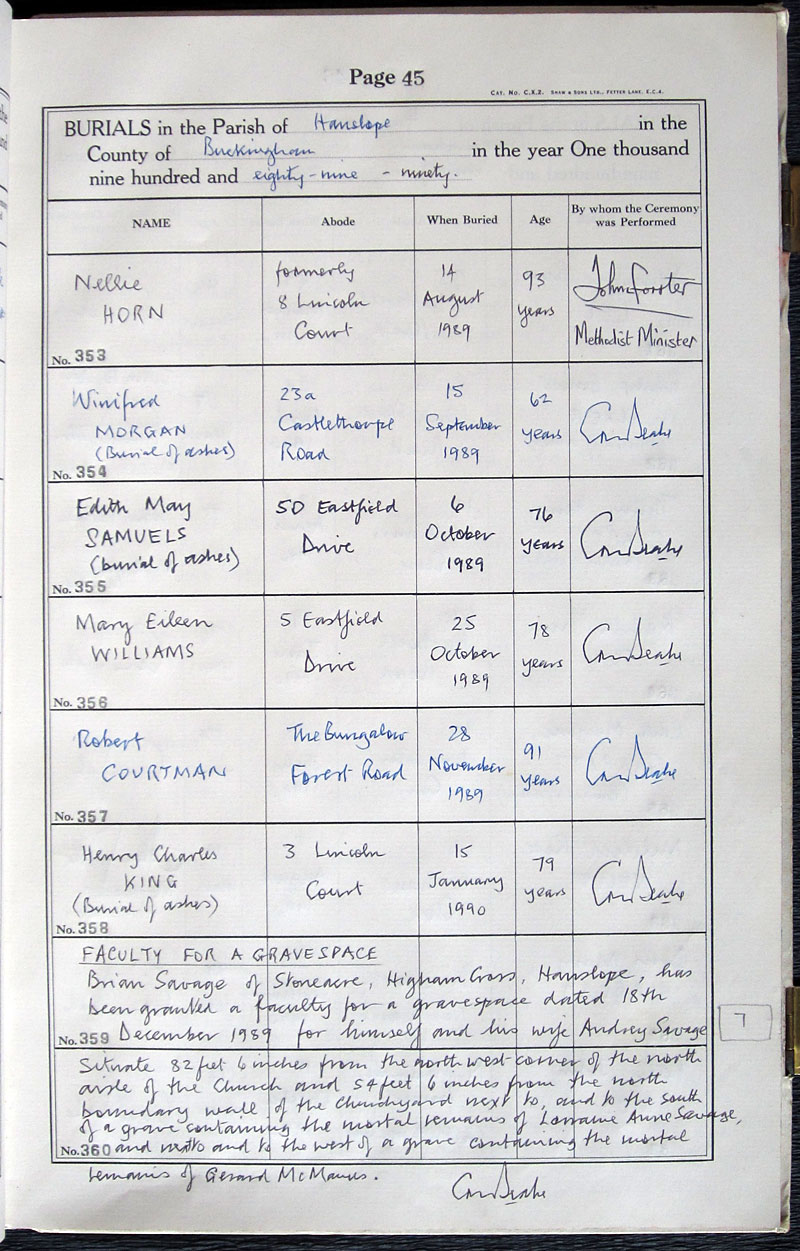 Page 45
CAT. No. C.X.2. SHAW & SONS LTD., FETTER LANE, E.C.4.
BURIALS in the Parish of Hanslope in the
County of Buckingham in the year One thousand
nine hundred and eighty-nine - ninety.
NAME Abode When Buried Age By whom the Ceremony was Performed
Nellie
HORN
No. 353
formerly
8 Lincoln
Court
14
August
1989
93
years
John Forster
Methodist Minister
Winifred
MORGAN
(Burial of ashes)
No. 354
23a
Castlethorpe
Road
15
September
1989
62
years
Edith May
SAMUELS
(burial of ashes)
No. 355
50 Eastfield
Drive
6
October
1989
76
years
Mary Eileen
WILLIAMS
No. 356
5 Eastfield
Drive
25
October
1989
78
years
Robert
COURTMAN
No. 357
The Bungalow
Forest Road
28
November
1989
91
years
Henry Charles
KING
(Burial of ashes)
No. 358
3 Lincoln
Court
15
January
1990
79
years
FACULTY FOR A GRAVESPACE
Brian Savage of Stoneacre, Higham Cross, Hanslope, has
been granted a faculty for a gravespace dated 18th
No. 359 December 1989 for himself and his wife Audrey Savage
7
Situate 82 feet 6 inches from the north west corner of the north
aisle of the Church and 54 feet 6 inches from the north
boundary wall of the Churchyard next to, and to the south
of a grave containing the mortal remains of Lorraine Anne Savage,
No. 360 and and to the west of a grave containing the mortal
remains of Gerard McManus.